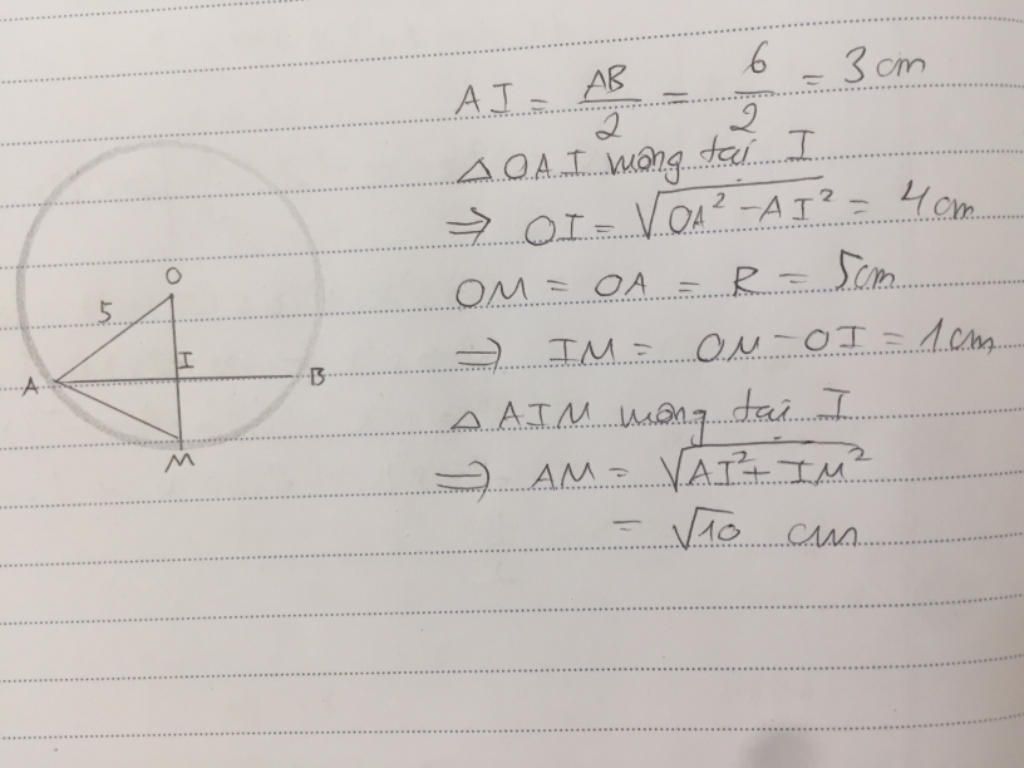 AI = AB/2 = 6/2 = 3 cm
△OAI vuông tại I
⇒ OI = √(OA² - AI²) = 4 cm
OM = OA = R = 5cm
⇒ IM = OM - OI = 1 cm
△AIM vuông tại I
⇒ AM = √(AI² + IM²)
= √10 cm
O
5
I
A
B
M